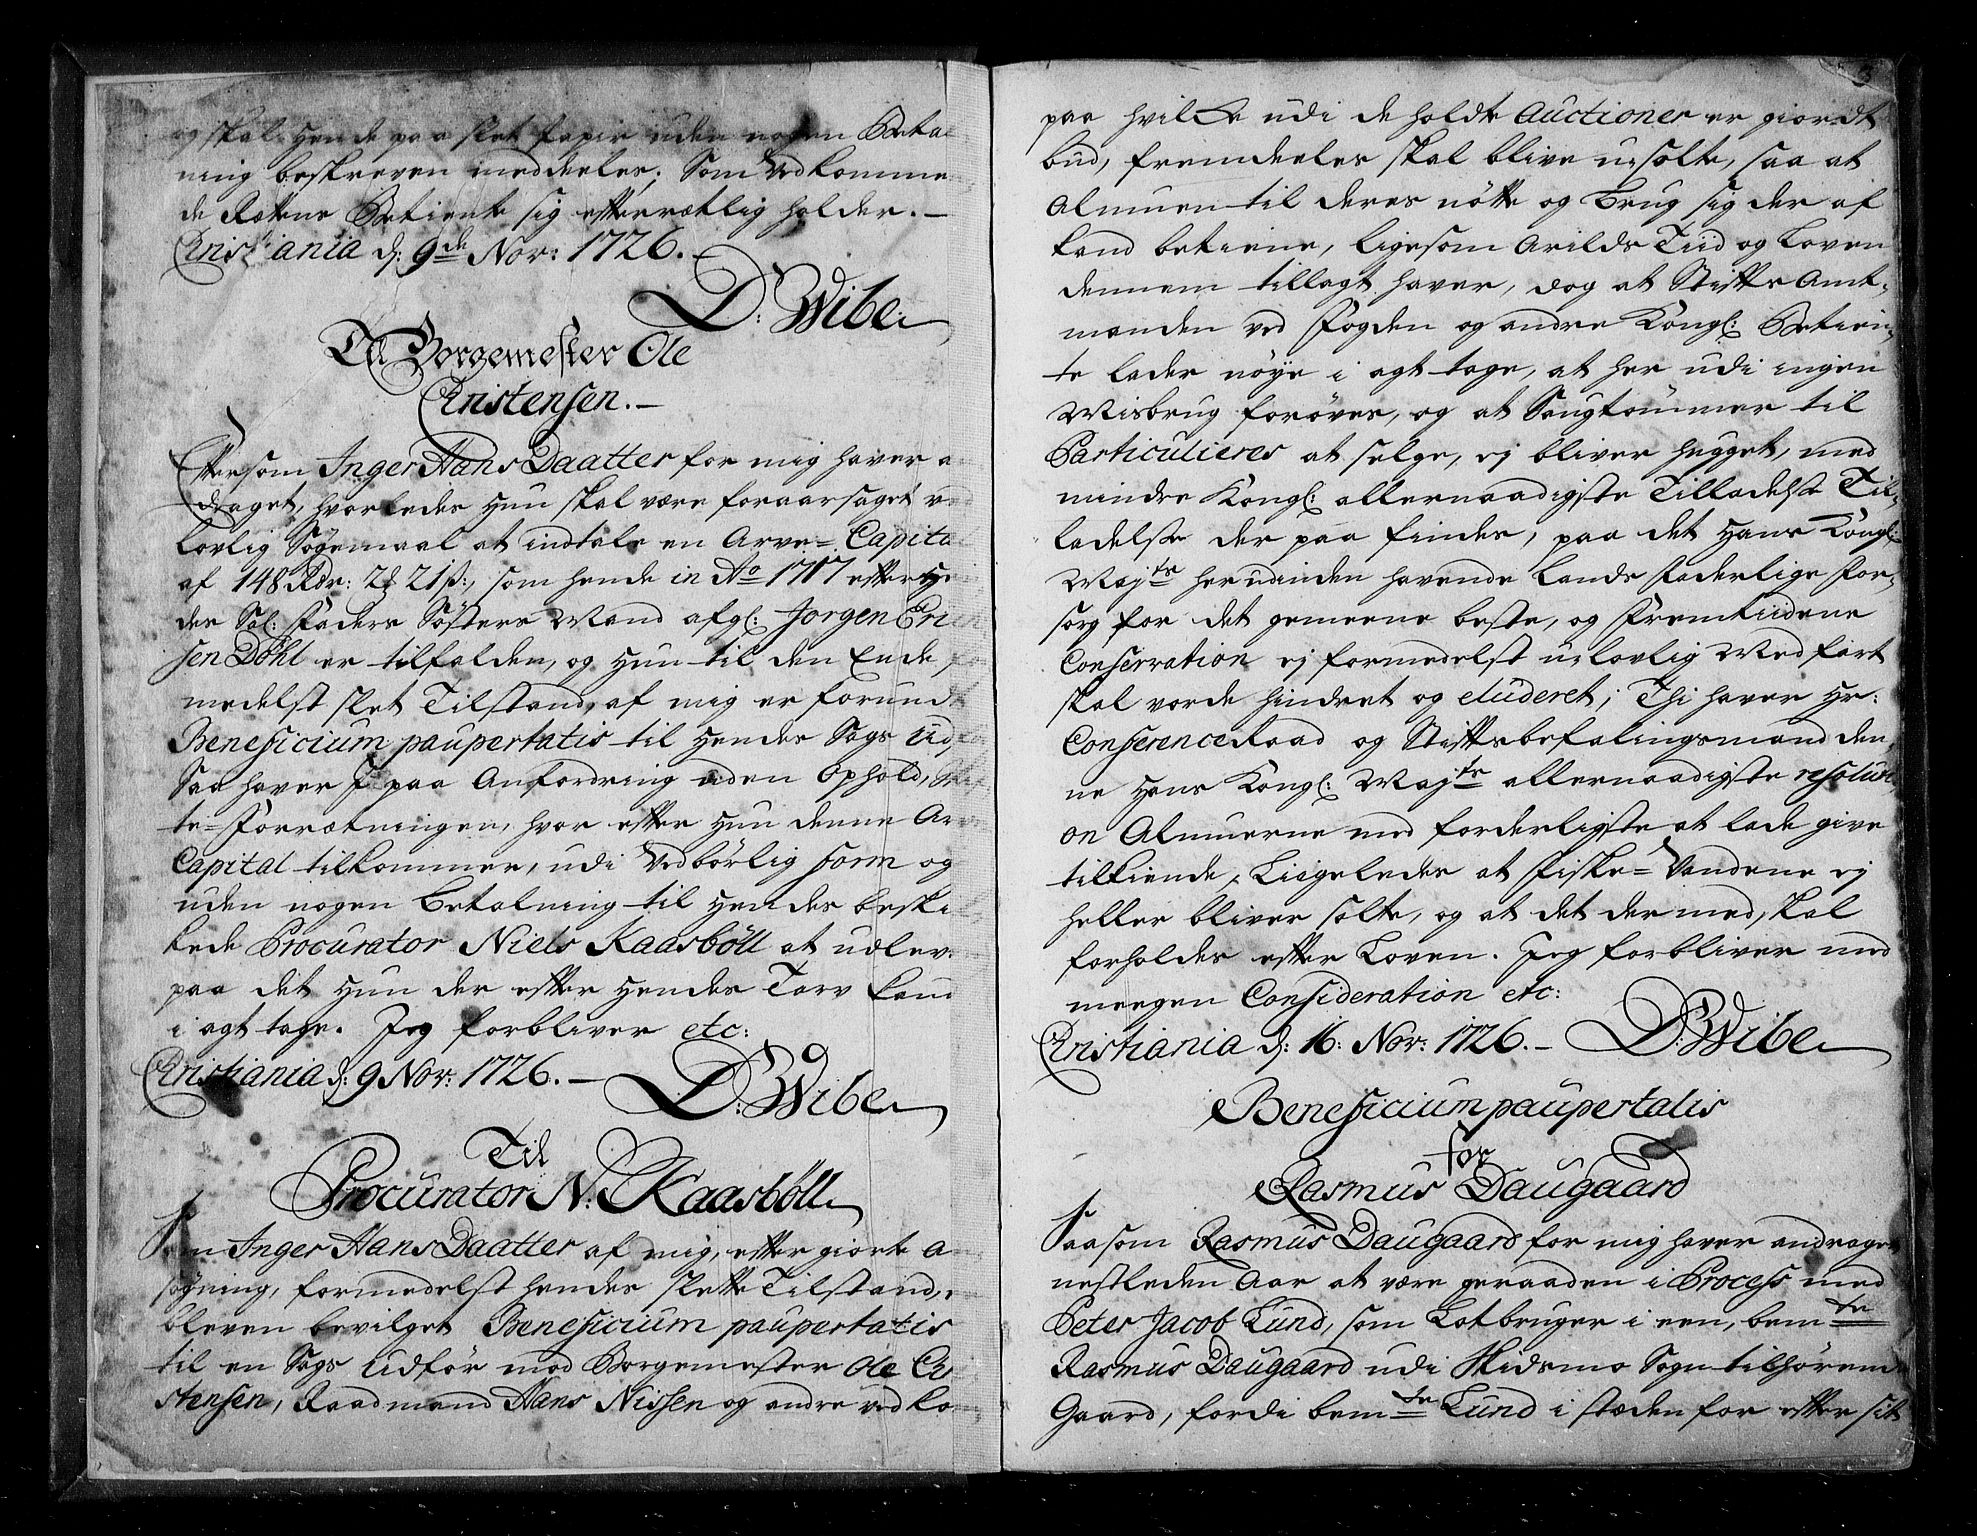 og skal hende paa slet Papir uden nogen Betal
ning beskreven meddeeles; Som Vedkomme
de Rettens Betiente sig efterretlig holder. –
Christiania d: 9de Nov: 1726. –
D: Wibe
Til Borgemester Ole
Christensen. –
Eftersom Inger Hans Daatter for mig haver a
draget, hvorledes Hun skal være foraarsaget v
lovlig Søgemaal at indtale en Arve= Capita
af 148 Rdr: 2 21 ß:, som hende in Ao 1717 efter He
des Sal: Faders Søsters Mand afg: Jorgen
sen Döhl er tilfalden, og Hun til den Ende
medelst slet Tilstand, af mig er forundt
Beneficium paupertatis til Hendes Sags Ud
Saa haver I paa Anfordring uden Ophold,
te=Forretningen, hvor efter Hun denne Ar
Capital tilkommer, udi Vedbörlig form og
uden nogen Betalning til Hendes beski
kede Procurator Niels Kaasböll at udlev:
paa det Hun der efter Hendes Tarv kand
i agt tage. Jeg forbliver etc:
Christiania d: 9 Nov: 1726. –
D: Wibe
Til
Procurator N: Kaasböll
Som Inger Hans Daatter af mig, efter giorte A
søgning, formedelst hendes slette Tilstand,
bleven bevilget Beneficium paupertatis
til en Sags Udför mod Borgemester Ole Chr
stensen, Raadmand Hans Nissen og andre vedko
3
paa hvilke udi de holdte Auctioner er giordt
bud, fremdeeles skal blive usolte, saa at
Almuen til deres nötte og Brug sig der af
kand betiene, ligesom Arilds Tiid og Loven
dennem tillagt haver, dog at Stifts Amt=
manden ved Fogden og andre Kongl: Betien=
te lader nöye i agt tage, at her udi ingen
Misbrug foröves, og at Saugtömmer til
Particulieres at selge, ej bliver hugget, med
mindre Kongl: allernaadigste Tilladelse Til=
ladelse der paa findes, paa det Hans Kongl:
Majts herudinden havende Lands Faderlige For=
sorg for det gemeene beste, og Fremtiidens
Conservation ej formedelst ulovlig Medfart
skal vorde hindret og eluderet; Thi haver Hr:
Conference Raad og Stiftsbefalingsmand den=
ne Hans Kongl: Majts allernaadigste resoluti
on Almuerne med forderligste at lade give
tilkiende, Liigeledes at Fiske=Vandene ej
heller bliver solte, og at det dermed, skal
forholdes efter Loven. Jeg forbliver med
meegen Consideration etc:
Christiania d: 16: Nov: 1726. –
D: Wibe
Beneficium paupertatis
for
Rasmus Daugaard
Saasom Rasmus Daugaard for mig haver andraget
nestleden Aar at være geraaden i Process med
Peter Jacob Lund, som Lotbruger i een, bemte
Rasmus Daugaard udi Hidsmo Sogn tilhörend
Gaard, fordi bemte Lund i stæden for efter sit